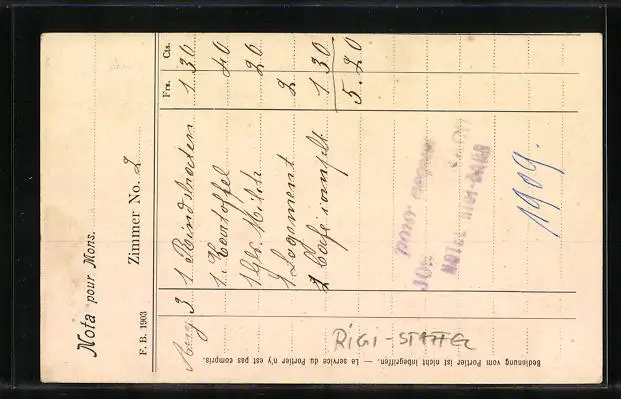 Nota pour Mons.
Zimmer No. 2
F. B. 1903
Frs. Cts.
Aug 3 1 Rindsbraten 1 30
1 Kartoffel 40
1 Gls. Milch 20
1 Logement 2
1 Café complt 1 30
5. 20
HOTEL RIGI-
1909.
RIGI-STAFFEL
Bedienung vom Portier ist nicht inbegriffen. — Le service du Portier n'y est pas compris.